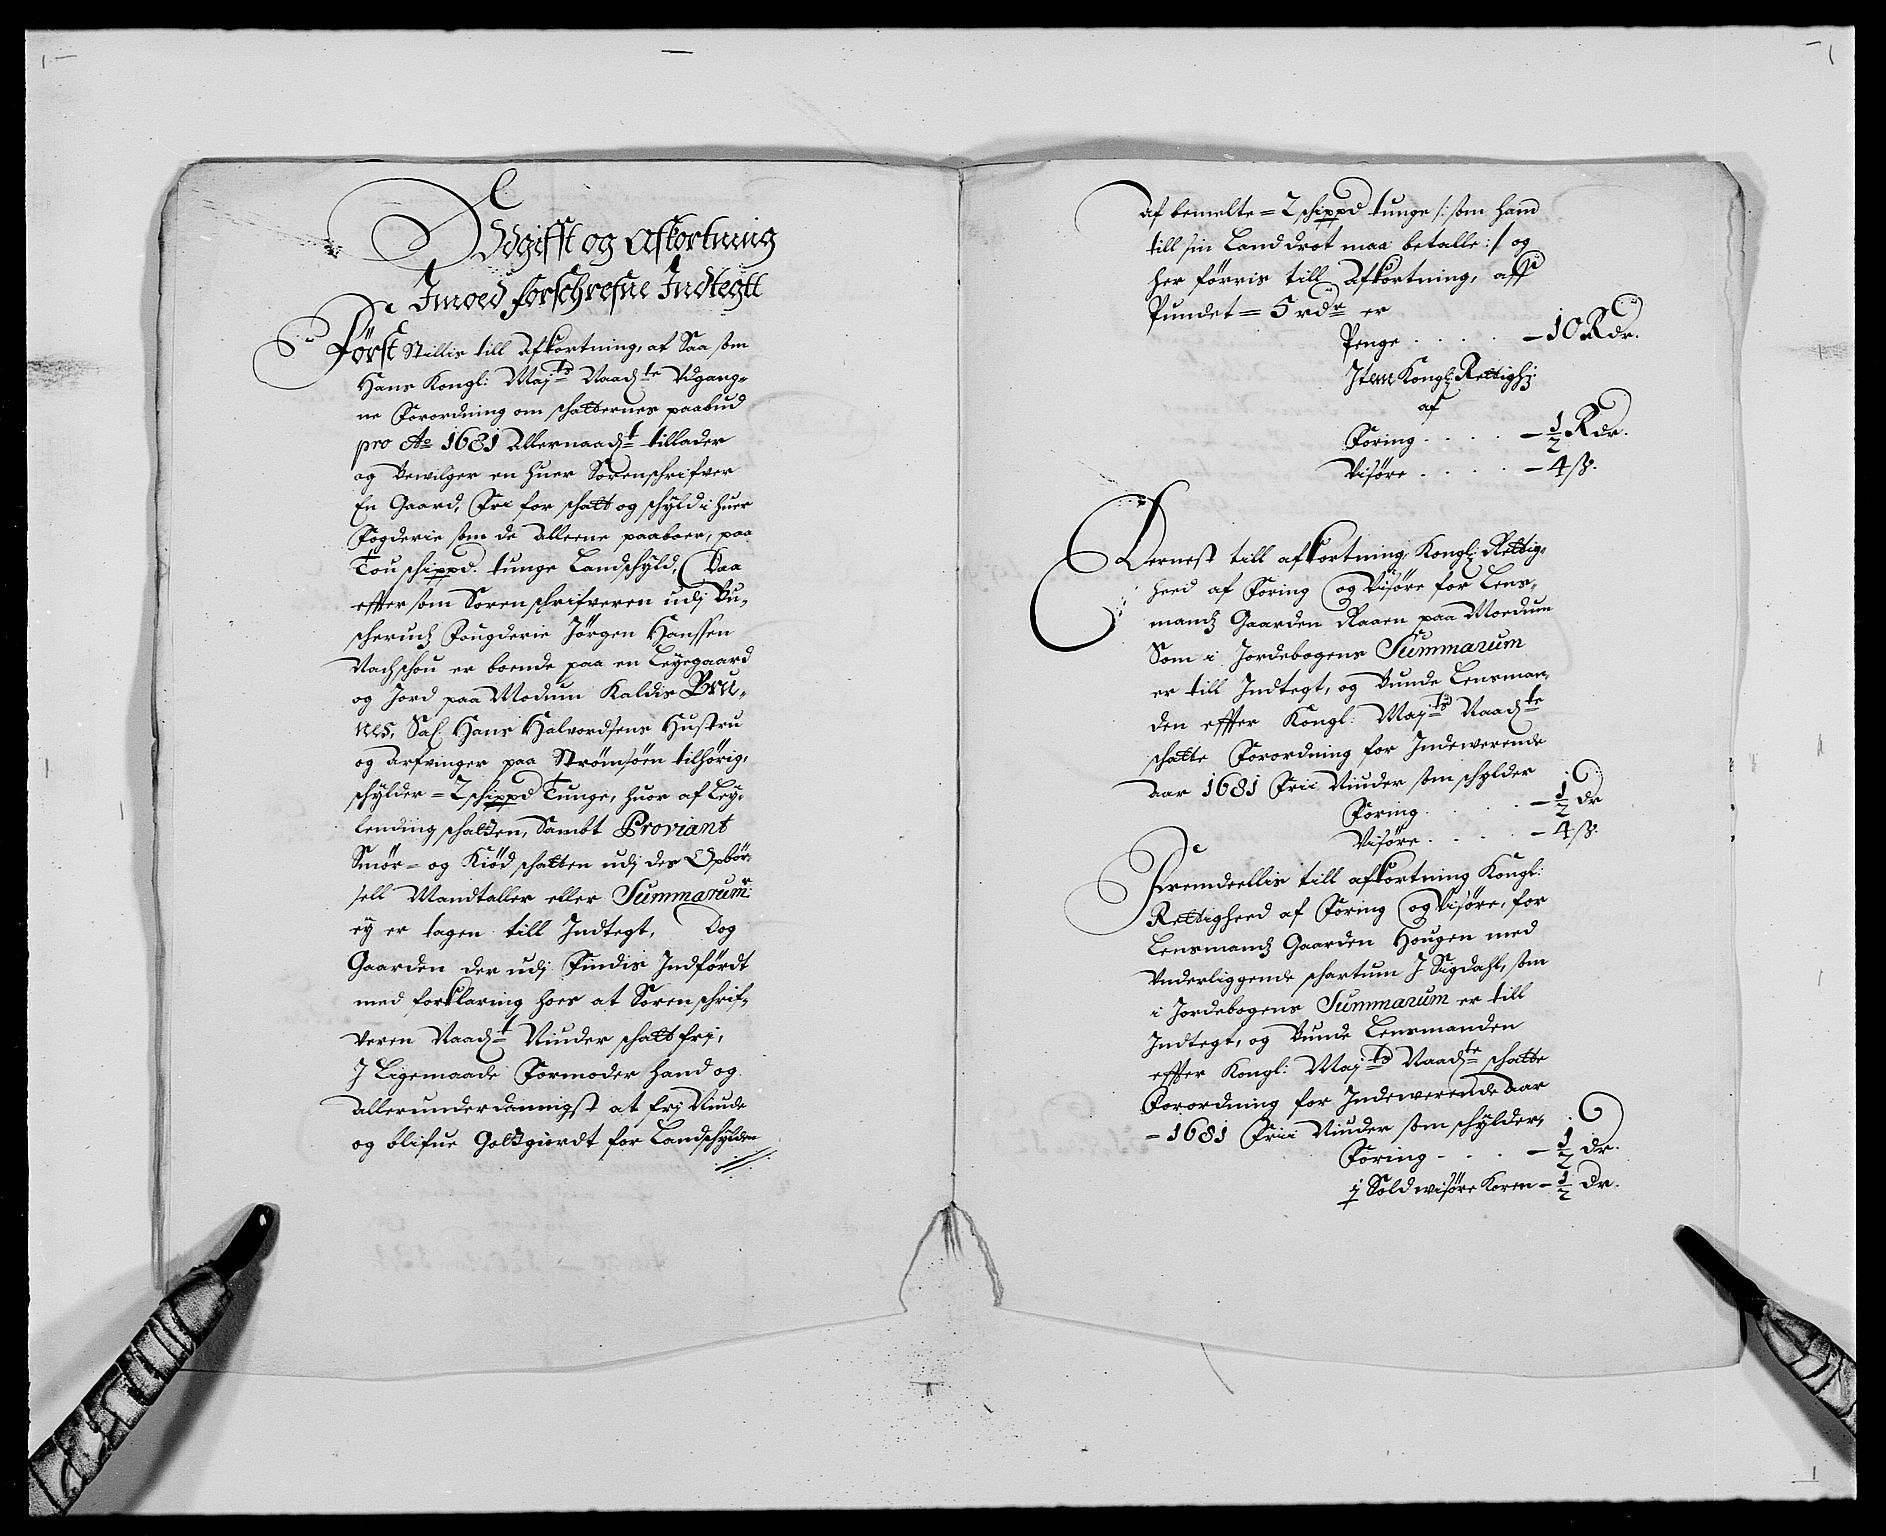 Udgifft og Afkortning
Imoed forschrefne Indtegtt
Först Stillis till Afkortning, af Saa som
Hans Kongl: Maj:ts Naadste Udgang-
ne Forordning om schatternes paabud
pro Ao 1681 Allernaadt tillader
og bewilger en huer Sorenschrifver
En Gaard, Fri for schatt og schyld i huer
Fogderie som de alleene paaboer, paa
Tou schippd. tunge Landschyld, Daa
effter som Sorenschrifveren udj Bu-
scheruds Fougderie Jörgen Hanssen
Nachschou er boende paa en Leyegaard
og Jord paa Modum Kaldis Bru-
nes, Sal Hans Halvordsens Hustru
og arfvinger paa Strömsöen tilhörig,
schylder = 2 schippd Tunge, huor af Ley-
lending schatten, Sambt Proviant
Smör- og Kiöd schatten udj des Opbör-
sell Mandtaller eller Summarumr
ey er tagen till Indtegt, Dog
Gaarden der udj Findis Indfördt
med forklaring hoes at Sorenschrif-
veren Naadt Niuder schatt frj,
J Ligemaade Formoder hand og
allerunderdannigst at frj Niude
og blifue Gottgiördt for Landschylden
af bemelte = 2 schippd tunge /: som hand
till sin Landdrot maa betalle :/ og
her förris till Afkortning, aff
Pundet = 5 rdr er
Penge . . . . . - 10 Rdr.
Item Kongl: Rettigh:
af
Foring . . . . - 1/2 Rdr.
Visöre . . . . - 4 ß.
Dernest till afkortning Kongl: Rettig-
heed af Foring og Visöre for Lens-
mands Gaarden Raaen paa Moedum
Som i Jordebogens Summarum
er till Indtegt, og Bunde Lensman-
den effter Kongl: Maj:ts Naadste
schatte Forordning for Indewerende
Aar 1681 Frii Niuder som schylder
Foring . . . . . - 1/2 dr
Visöre . . . . - 4 ß.
Fremdeellis till afkortning Kongl:
Rettigheed af Foring og Visöre, for
Lensmands Gaarden Hougen med
Underliggende schartum J Sigdahl, som
i Jordebogens Summarum er till
Indtegt, og Bunde Lensmanden
effter Kongl: Maj:ts Naadste schatte
Forordning for Indewerende Aar
= 1681 Frii Niuder som schylder,
Foring - . . . - 1/2 dr.
j Sold wisöre Koren - 1/2 Dr.